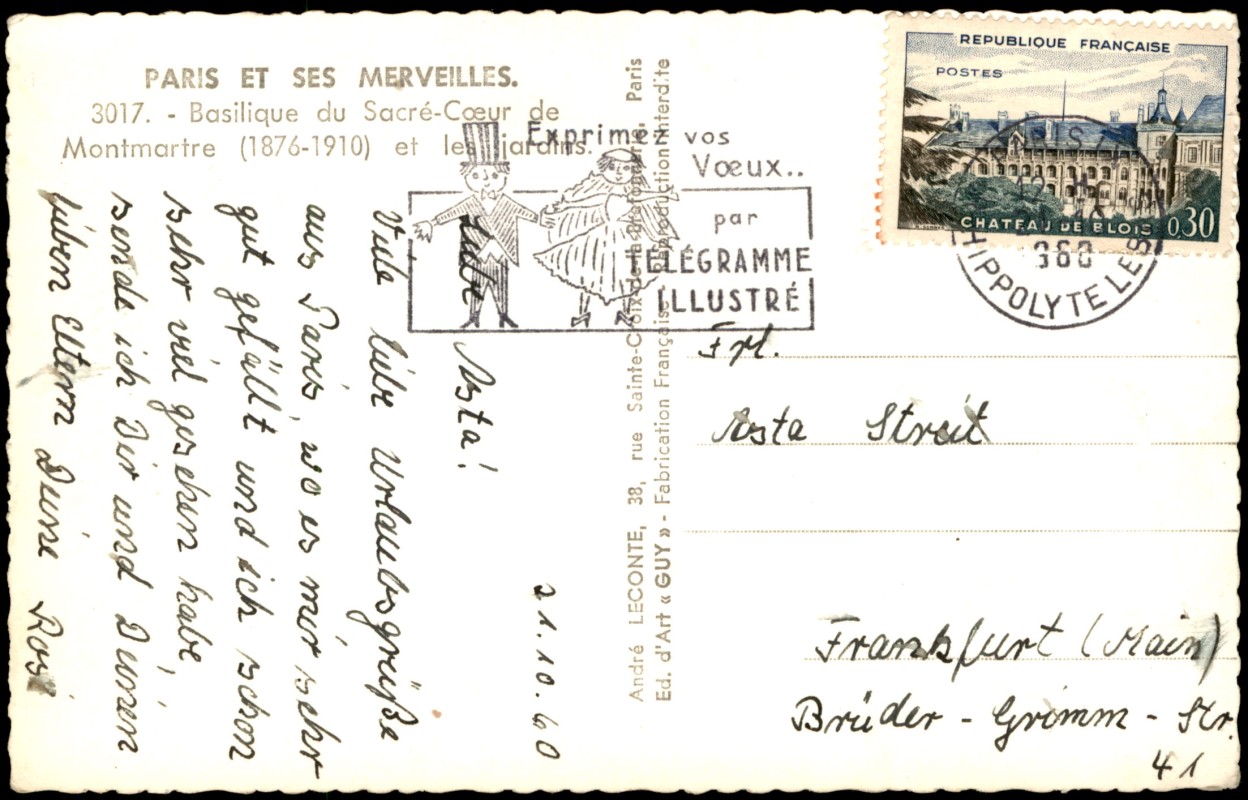 PARIS ET SES MERVEILLES.
3017. - Basilique du Sacré-Cœur de
Montmartre (1876-1910) et les jardins.
Exprimez vos
Vœux..
par
TÉLÉGRAMME
ILLUSTRÉ
REPUBLIQUE FRANÇAISE
POSTES
CHATEAU DE BLOIS 0,30
HIPPOLYTE LES
André LECONTE, 38, rue Sainte-Croix-de-la-Bretonnerie, Paris
Ed. d'Art « GUY » - Fabrication Française - Reproduction interdite
21.10.60
Liebe Asta!
Viele liebe Urlaubsgrüße
aus Paris, wo es mir sehr
gut gefällt und ich schon
sehr viel gesehen habe,
sende ich Dir und Deinen
lieben Eltern Deine Rosi
Frl.
Asta Streit
Frankfurt (Main)
Brüder-Grimm-Str.
41